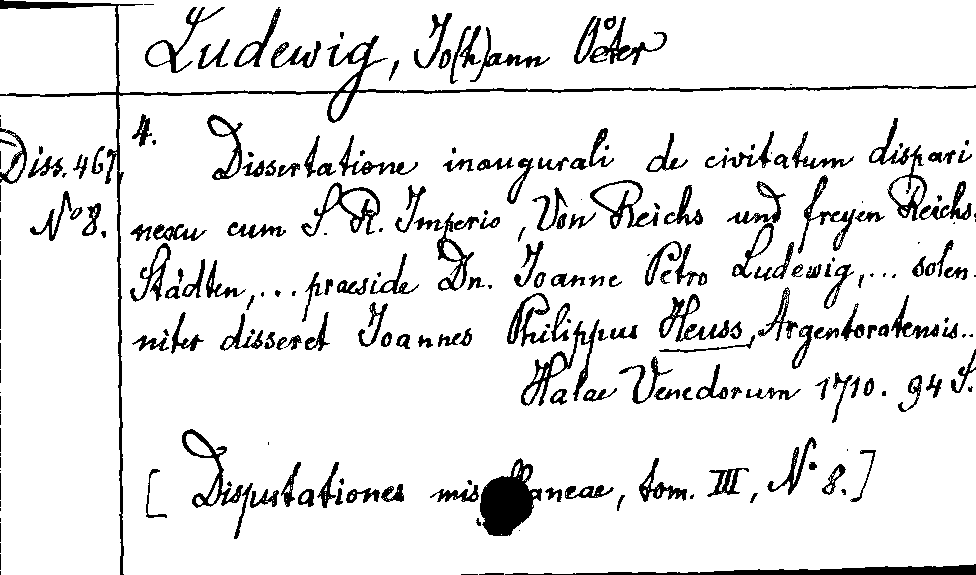 Ludewig, Jo(h)ann Peter
4.
Diss. 467,
N° 8.
Dissertatione inaugurali de civitatum dispari
nexu cum S. R. Imperio, Von Reichs und freyen Reichs-
Städten,... praeside Dn. Joanne Petro Ludewig,... solen-
niter disseret Joannes Philippus Heuss, Argentoratensis...
Halae Venedorum 1710. 94 S.
[Disputationes aneae, tom. III, N° 8.]